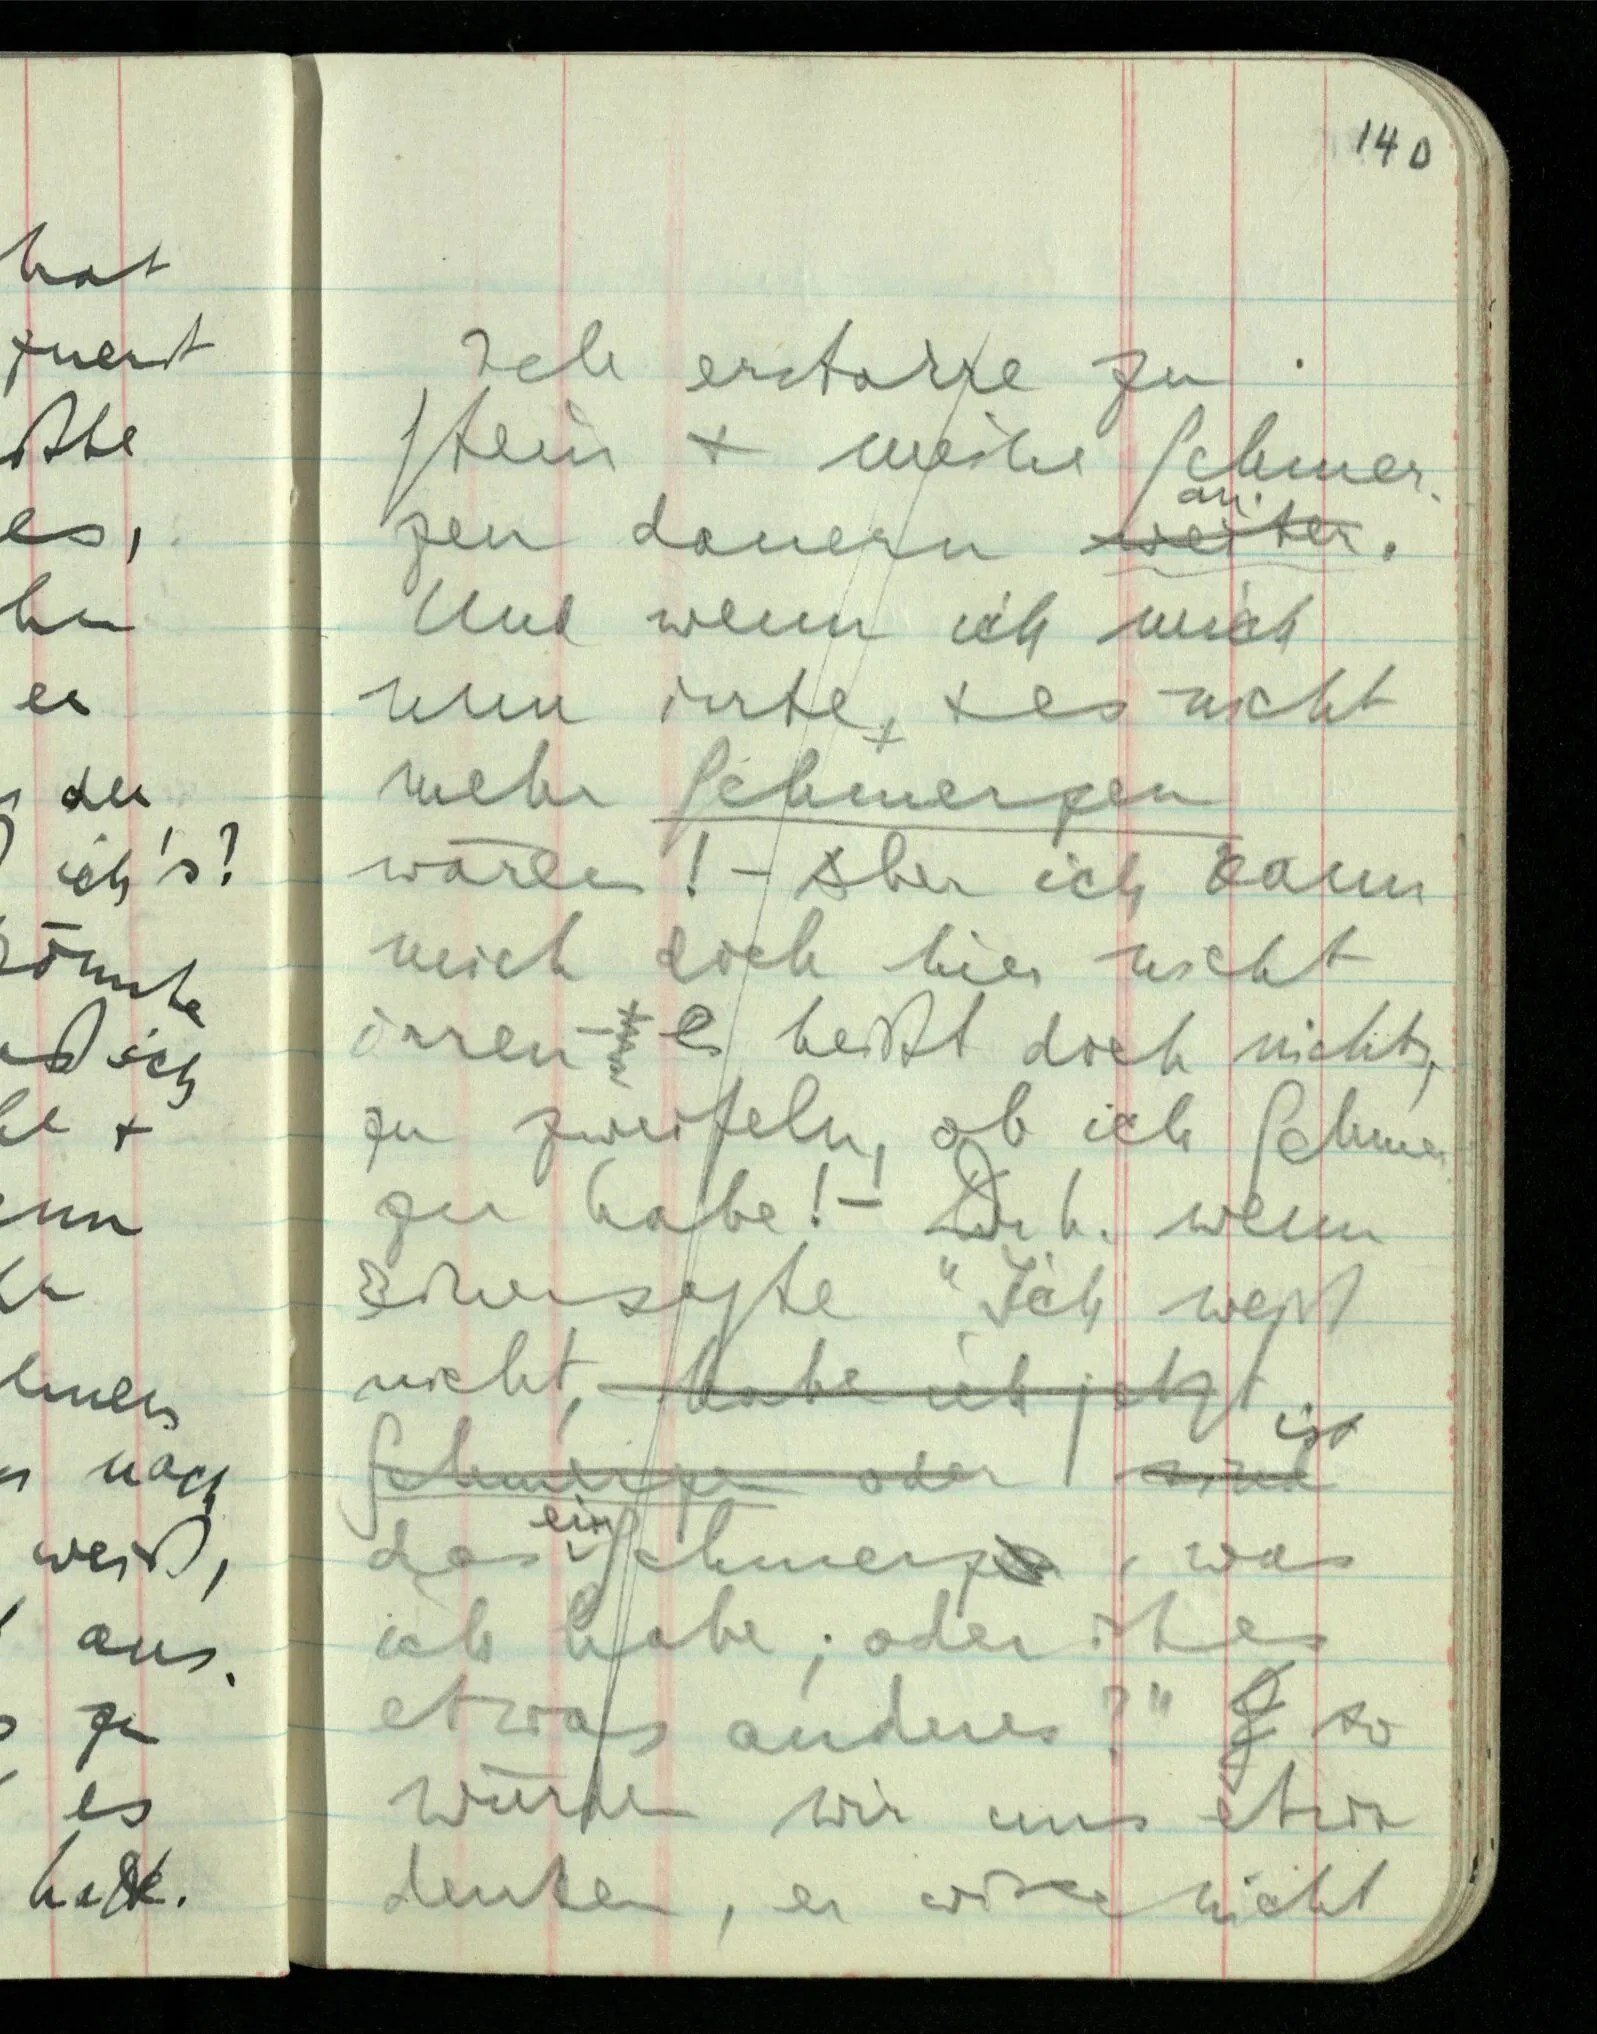 hat
zuerst
es,
er
der
ich's?
könnte
daß ich
+
nach
weiß,
aus.
zu
es
hatte.
140
Ich erstarre zu
Stein + meine Schmer-
zen dauern weiter an.
Und wenn ich mich
nun irrte, + es nicht
mehr Schmerzen
wären! – Aber ich kann
mich doch hier nicht
irren – es heißt doch nichts,
zu zweifeln, ob ich Schmer
zen habe! – D.h. wenn
Einer sagte "Ich weiß
nicht, habe ich jetzt
Schmerzen oder sind ist
das ein Schmerz, was
ich habe; oder ist es
etwas anderes?" so
würden wir uns etwa
denken, er wisse nicht